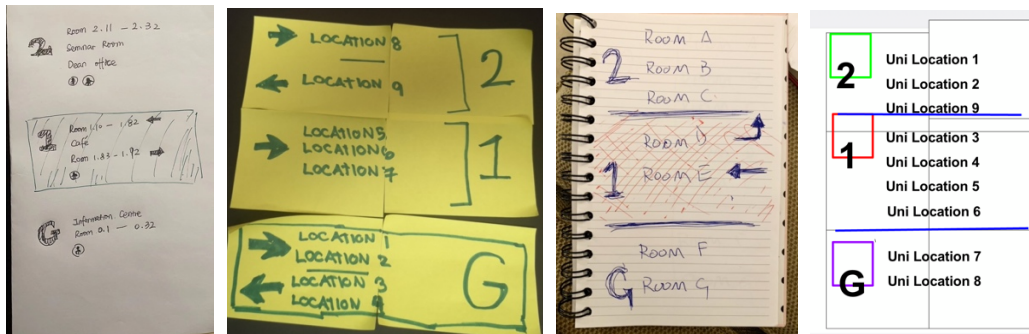 2
Room 2.11 – 2.32
Seminar Room
Dean office
1
Room 1.10 – 1.82
Café
Room 1.83 – 1.92
G
Information Centre
Room 0.1 – 0.32
LOCATION 8
LOCATION 9
2
LOCATION 5
LOCATION 6
LOCATION 7
1
LOCATION 1
LOCATION 2
LOCATION 3
LOCATION
G
2
ROOM A
ROOM B
ROOM C
1
ROOM D
ROOM E
G
ROOM F
ROOM G
2
Uni Location 1
Uni Location 2
Uni Location 9
1
Uni Location 3
Uni Location 4
Uni Location 5
Uni Location 6
G
Uni Location 7
Uni Location 8